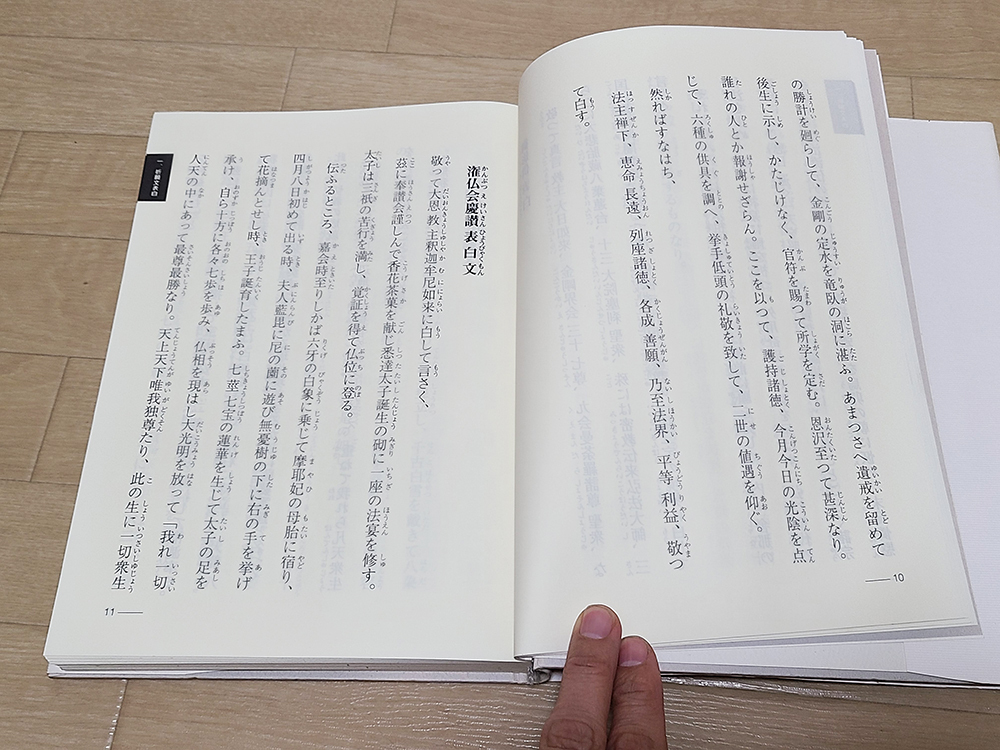 の勝計を廻らして、金剛の定水を竜臥の洞に湛ふ。あまつさへ遺戒を留めて
後生に示し、かたじけなく、官符を賜って所学を定む。恩沢至つて甚深なり。
誰れの人とか報謝せざらん。ここを以つて、護持諸徳、今月今日の光陰を点
じて、六種の供具を調へ、挙手低頭の礼敬を致して、二世の値遇を仰ぐ。
然ればすなはち、
法主禅下、恵命長遠、列座諸徳、各成善願、乃至法界、平等利益、敬つ
て白す。
10
一、祈願文表白
灌仏会慶讃表白文
敬って大恩教主釈迦牟尼如来に白して言さく、
玆に奉讃会謹しんで香花茶菓を献じ悉達太子誕生の砌に一座の法宴を修す。
太子は三祇の苦行を満し、覚証を得て仏位に登る。
伝ふるところ、嘉会時至りしかば六牙の白象に乗じて摩耶妃の母胎に宿り、
四月八日初めて出る時、夫人藍毘に尼の薗に遊び無憂樹の下に右の手を挙げ
て花摘んとせし時、王子誕育したまふ。七茎七宝の蓮華を生じて太子の足を
承け、自ら十方に各々七歩を歩み、仏相を現はし大光明を放って「我れ一切
人天の中にあって最尊最勝なり。天上天下唯我独尊たり、此の生に一切衆生
11